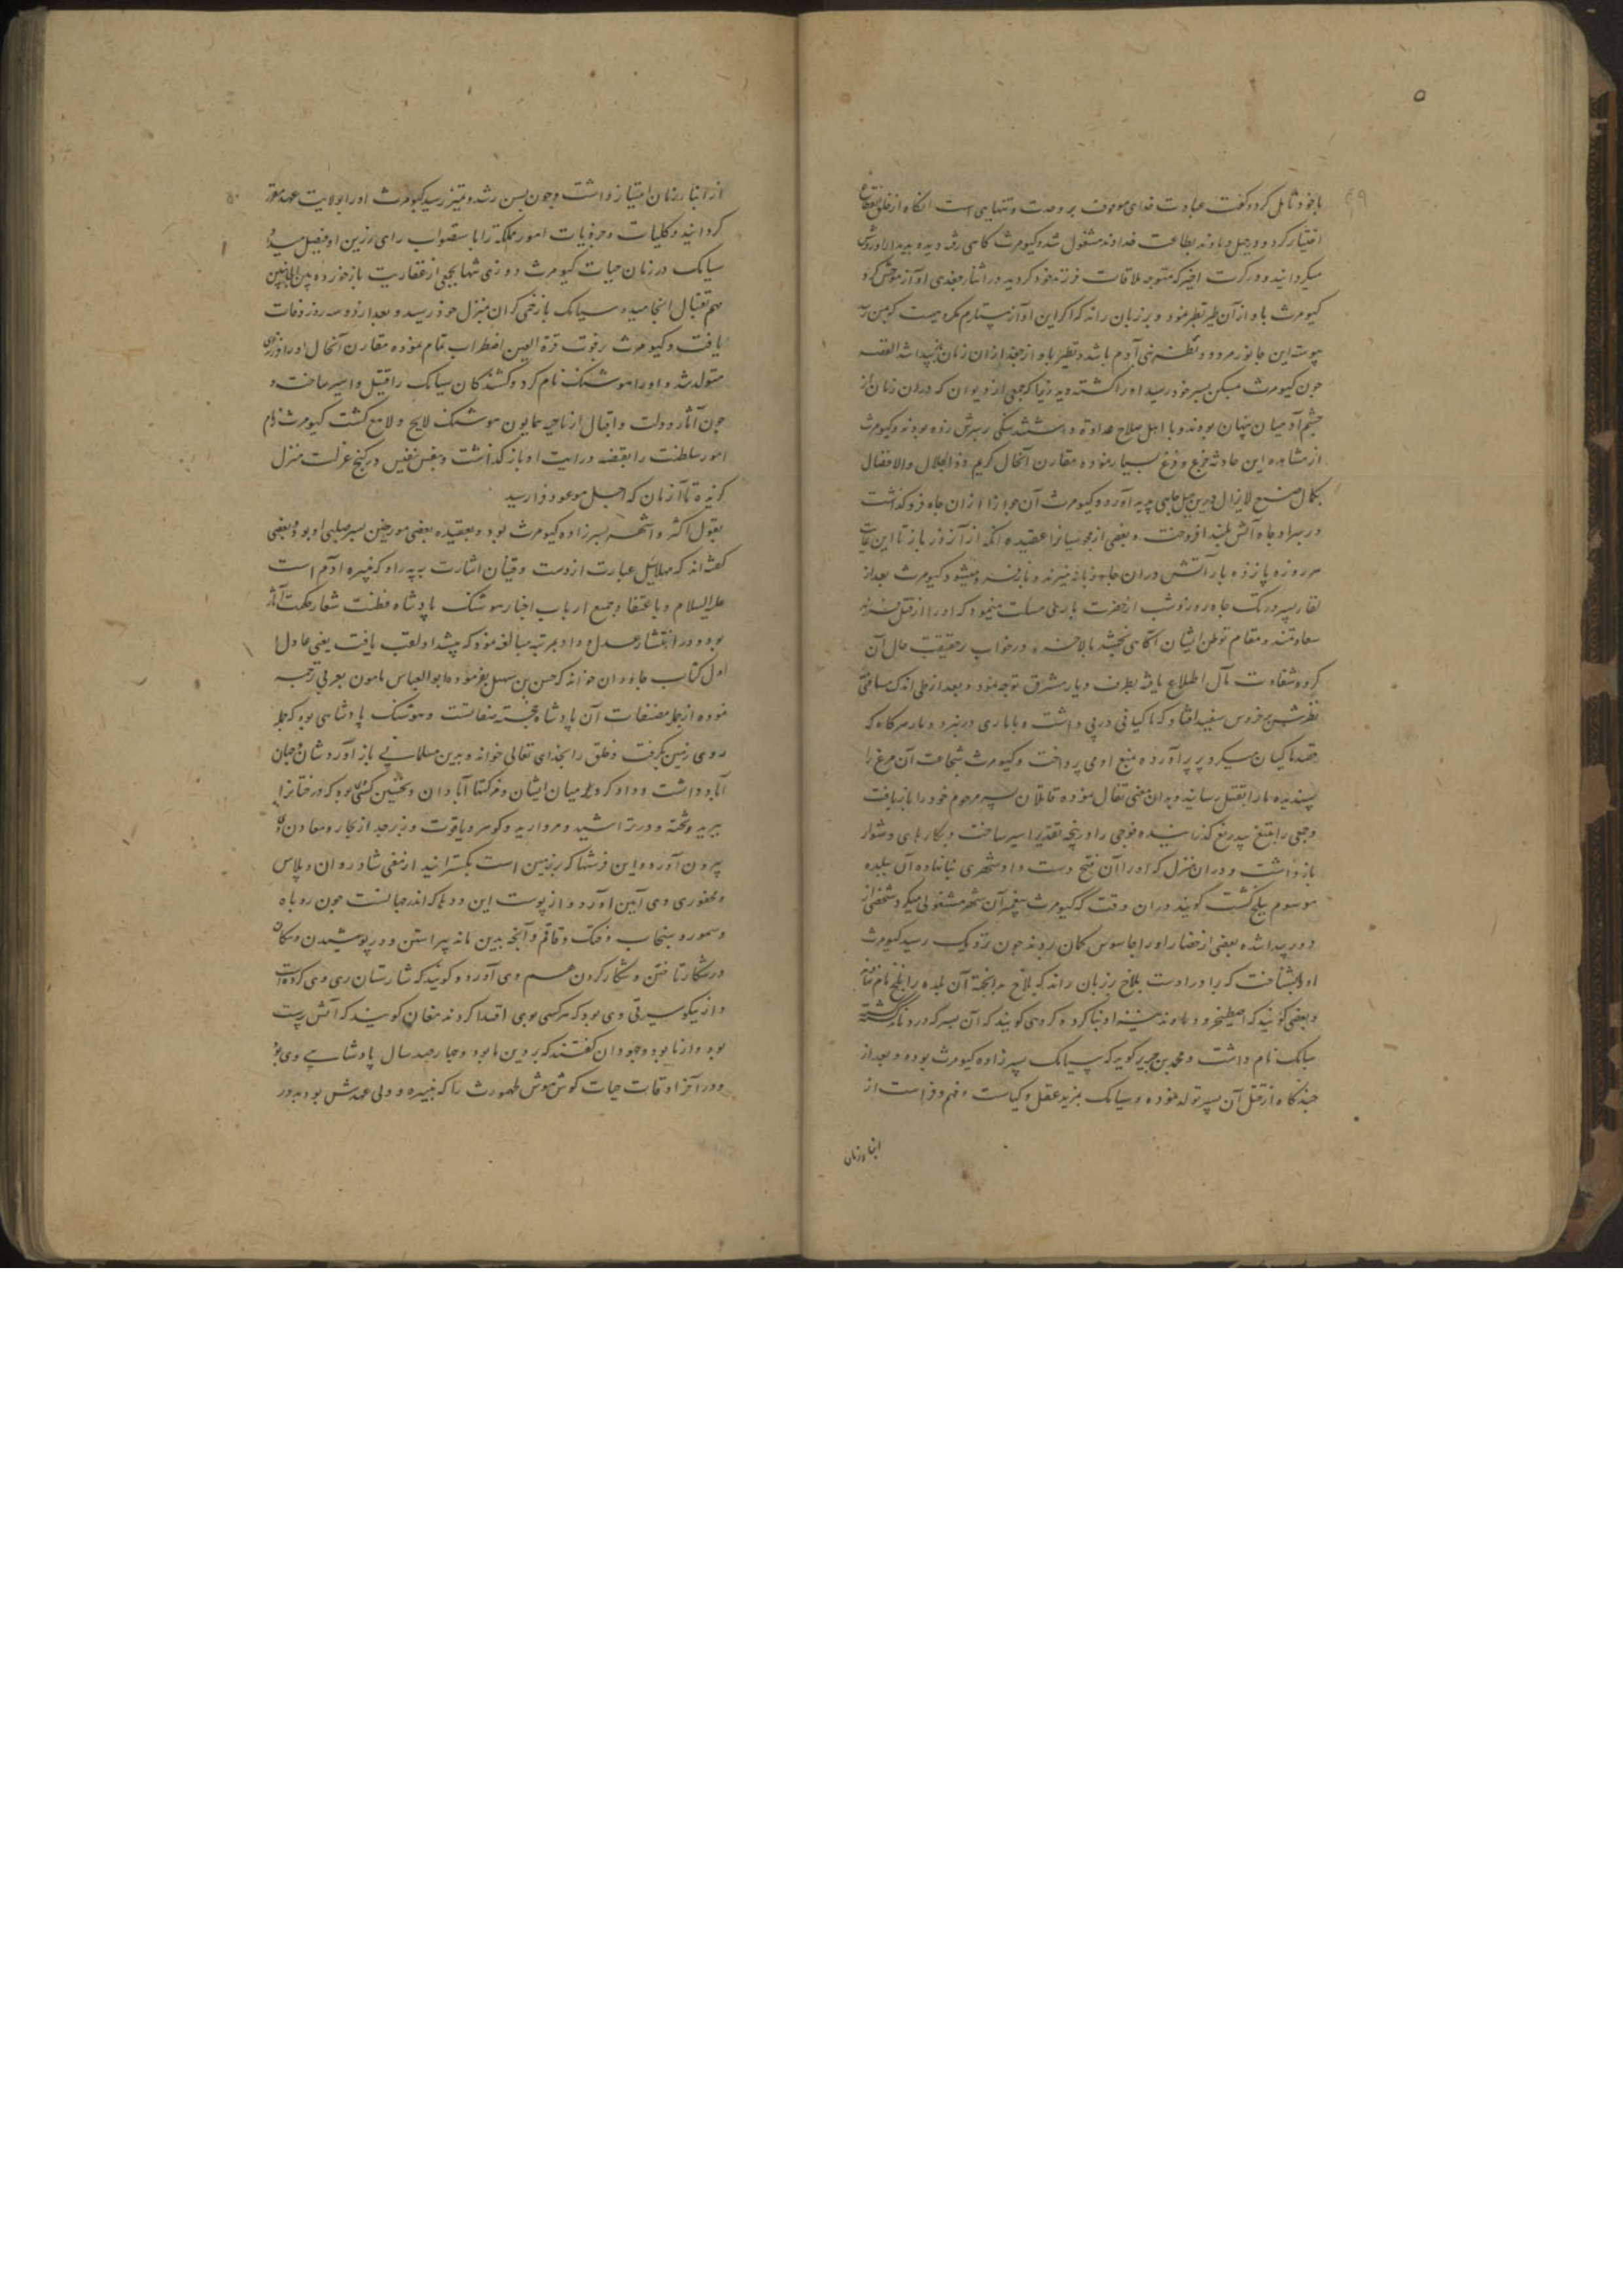 ۵
۴۹
باخود تامل کرد و گفت عبادت خدای موقوف بر وحدت و تنهایی است آنکاه از خلق انقطاع
اختیار کرد و در جبل دماوند بطاعت خداوند مشغول شد و کیومرث کاهی رفته دیده بدیدار او روشن
میکردانید و در کرت اخیر که متوجه ملاقات فرزند خود کردید در اثناء راه جغدی آواز موحش کرد
کیومرث باو از آن طیر تطیر نمود و بر زبان راند که اکر این آواز مستلزم مکروهیست
پیوسته این جانور مردود و بنظر بنی آدم باشد و تطیر باو از جغد از ان زمان باز پیدا شد القصه
جون کیومرث بمسکن پسر خود رسید او را کشته دید زیرا که جمعی از دیوان که در ان زمان از
چشم آدمیان پنهان بودند و با اهل صلاح عداوة داشتند سنکی بر سرش زده بودند و کیومرث
از مشاهده این حادثه جزع و فزع بسیار نموده مقارن آنحال کریم ذو الجلال والافضال
بکمال صنع لایزال در بن جبل چاهی پدید آورد و کیومرث آن جوانرا از ان چاه فرو کذاشت
و در سر او چاه آتش بلند افروخت و بعضی از مجوسیانرا عقیده آنکه از آن روز باز تا این غایت
هر روزه پانزده بار آتش در ان چاه زبانه میزند و باز فرو میشود کیومرث بعد از
پسر در تک چاه روز و شب از حضرت باری مسلت مینمود که او را از قتل فرزند
سعادتمند و مقام توطن ایشان آکاهی بخشد بالاخره در خواب بر حقیقت حال آن
کروه شقاوت مآل اطلاع یافته بطرف دیار مشرق توجه نمود و بعد از طی اندک مسافتی
نظرش بر خروس سفید افتاد که ماکیانی در پی داشت و با ماری در نبرد و مار هر کاه که
قصد ماکیان میکرد بر پر آورده منع او می پرداخت و کیومرث شجاعت آن مرغ را
پسندیده مار را بقتل رسانید و بدان معنی تفال نموده قاتلان پسر مرحوم خود را بازیافت
و جمعی را بتیغ بیدریغ کذرانیده فوجی را در پنجه تقدیر اسیر ساخت و بکارهای دشوار
بازداشت و در ان منزل که او را آن فتح دست داد شهری بنا نهاده آن بلده
موسوم ببلخ کشت کویند در ان وقت که کیومرث بتعمیر آن شهر مشغولی میکرد شخصی از
دور پیدا شده بعضی از حضار او را جاسوس کمان بردند جون نزدیک رسید کیومرث
او را بشناخت که برادر اوست بلاخ بر زبان راند که بلاخ بدانجهة آن بلده را بلخ نام نهاد
و بعضی کویند که اصطخر و دماوند نیز او بنا کرده کروهی کویند که آن پسر که در دماوند کشته
سیامک نام داشت و محمد بن جریر کوید که سیامک پسر زاده کیومرث بوده و بعد از
چند کاه از قتل آن پسر تولد نموده و سیامک بمزید عقل و کیاست و فهم و فراست از
ابناء زمان
۵۰
از ابناء زمان امتیاز داشت و جون بسن رشد و تمیز رسید کیومرث او را بولایت عهد مقرر
کردانید و کلیات و جزویات امور مملکة را باستصواب رای رزین او فیصل میداد
سیامک در زمان حیات کیومرث روزی تنها بجمعی از عفاریت بازخورده
مهم بقتال انجامید و سیامک با زخمی کران بمنزل خود رسید و بعد از دو سه روز وفات
یافت و کیومرث بر فوت قرة العین اضطراب تمام نموده مقارن آنحال او را فرزندی
متولد شد و او را هوشنک نام کرد و کشندکان سیامک را قتیل و اسیر ساخت و
جون آثار دولت و اقبال از ناصیه همایون هوشنک لایح و لامع کشت کیومرث زمام
امور سلطنت را بقبضه درایت او باز کذاشت و بنفس نفیس در کنج عزلت منزل
کزید تا آن زمان که اجل موعود فرا رسید
بقول اکثر و اشهر پسر زاده کیومرث بود و بعقیده بعضی مورخین پسر صلبی او بود و بعضی
کفته اند که مهلائیل عبارت از اوست و قینان اشارت به پدر او که نبیره آدم است
علیه السلام و باعتقاد جمیع ارباب اخبار هوشنک پادشاه فطنت شعار حکمت آثار
بود و در انتشار عدل و داد بمرتبه مبالغه نمود که پیشداد لقب یافت یعنی عادل
اول کتاب جاودان خرد که حسن بن سهل بفرموده ابو العباس مامون بعربی ترجمه
نموده از جمله مصنفات آن پادشاه خجسته صفاتست و هوشنک پادشاهی بود که همه
روی زمین بکرفت و خلق را بخدای تعالی خواند و بدین مسلمانی باز آورد و جهان
آباد داشت و داد کرد میان ایشان و مملکتها آبادان و نخستین کسی بود که درختانرا
ببرید و تخته و در تراشید و مروارید و کوهر و یاقوت و زبرجد از بحار و معادن
بیرون آورد و این فرشها که بر زمین است بکسترانید از معنی شادروان و پلاس
و محفوری وی آیین آورد و از پوست این ددها که اندر جهانست جون روباه
و سمور و سنجاب و فنک و قاقم و آنچه بدین ماند پیراستن و در پوشیدن و سکان
در شکار تاختن و شکار کردن هم وی آورد و کویند که شارستان ری وی کرده است
و از نیکو سیرتی وی بود که هر کسی بوی اقتدا کردند مغان کویند که آتش پرست
بود و از ما بود و جهودان کفتند که بر دین ما بود و چهار صد سال پادشاهی وی بود
و در آخر اوقات حیات کوش هوش طهمورث را که نبیره و ولی عهدش بود بدرر